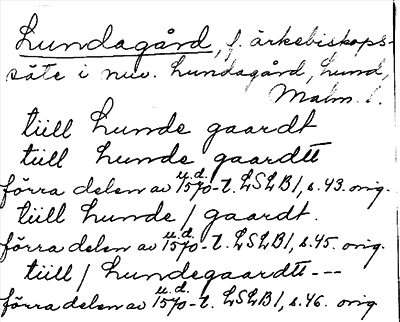 Lundagård, f. ärkebiskops-
säte i nuv. Lundagård, Lund,
Malm. l.
tiill Lunde gaardt
tiill Lunde gaardtt
förra delen av u.d. 1570-t. LSLB1, s. 43. orig.
tiill Lunde / gaardt.
förra delen av u.d. 1570-t. LSLB1, s. 45. orig.
tiill / Lundegaardtt ---
förra delen av u.d. 1570-t. LSLB1, s. 46. orig